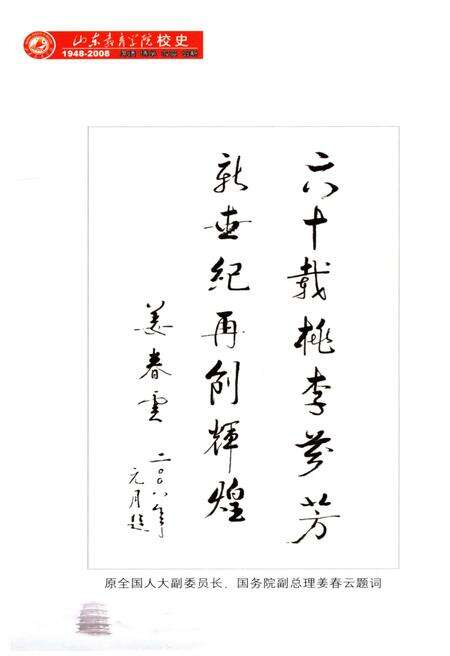 山东教育学院校史
1948-2008
六十载桃李芬芳
新世纪再创辉煌
姜春雲
二〇〇八年
元月题
原全国人大副委员长、国务院副总理姜春云题词